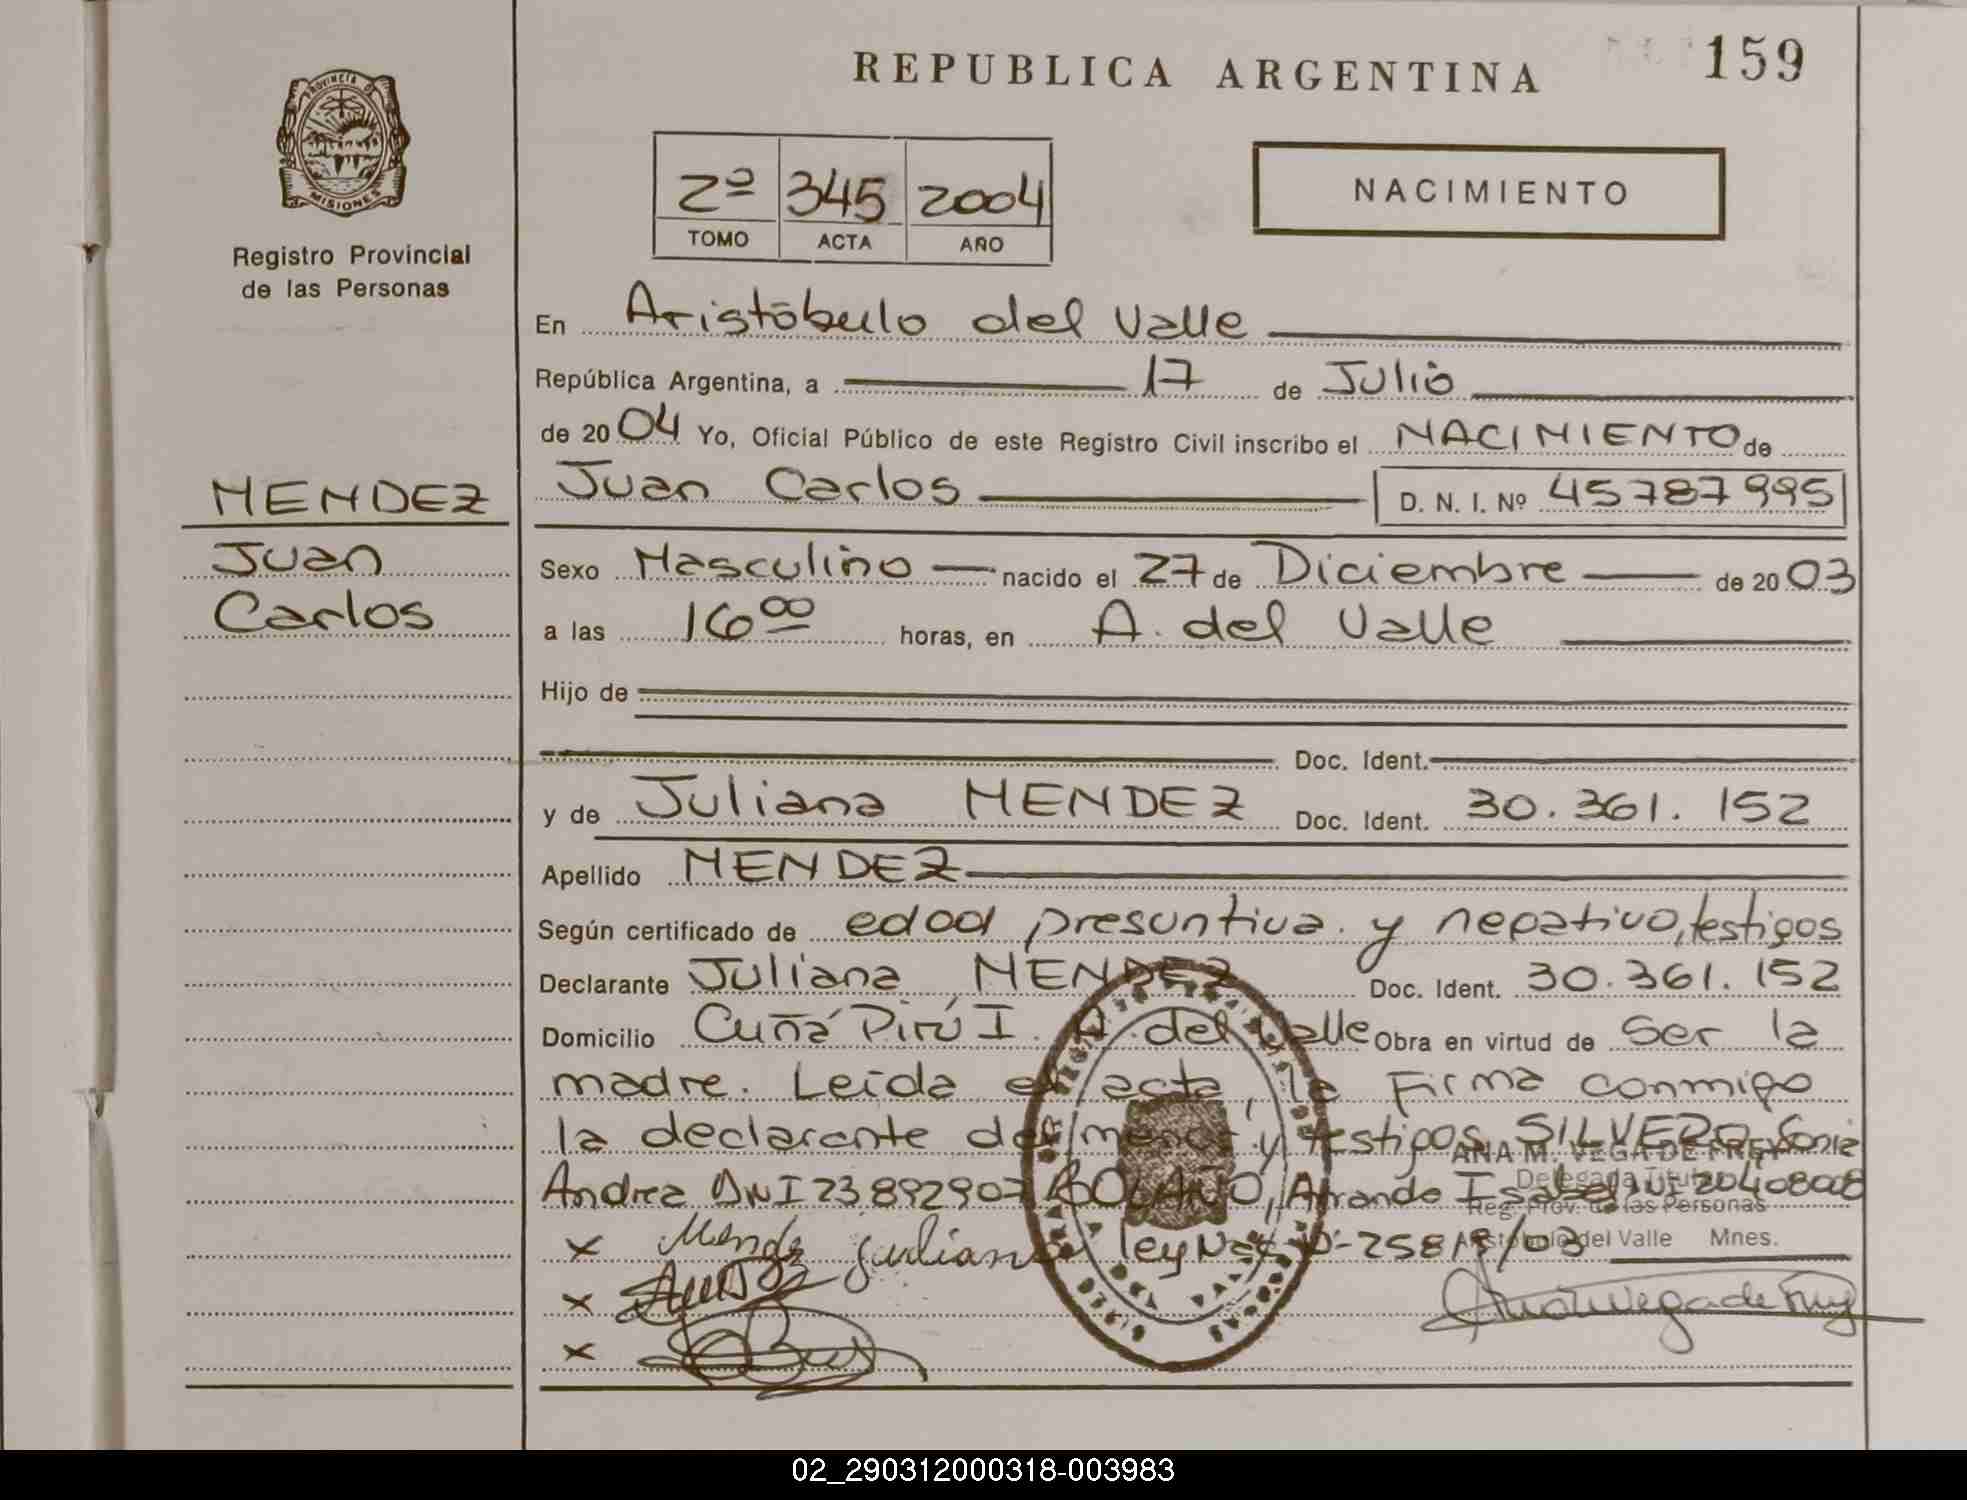 REPUBLICA ARGENTINA
159
PROVINCIA D
MISIONES
Registro Provincial
de las Personas
2º 345 2004
TOMO ACTA AÑO
NACIMIENTO
En Aristóbulo del Valle
República Argentina, a 17 de Julio
de 2004 Yo, Oficial Público de este Registro Civil inscribo el NACIMIENTO de
MENDEZ
Juan
Carlos
Juan Carlos D. N. I. Nº 45787995
Sexo Masculino nacido el 27 de Diciembre de 2003
a las 16 00 horas, en A. del Valle
Hijo de
Doc. Ident.
y de Juliana MENDEZ Doc. Ident. 30.361.152
Apellido MENDEZ
Según certificado de edad presuntiva y negativo, testigos
Declarante Juliana MENDEZ Doc. Ident. 30.361.152
Domicilio Cuñá Pirú I. A. del Valle Obra en virtud de ser la
madre. Leída el acta, la Firma conmigo
la declarante y testigos SILVERO, Sonia
Andrea DNI 23892907
ANA M. VEGA DE FREY
Delegada Titular
Reg. Prov. de las Personas
Aristóbulo del Valle Mnes.
x Mendez Juliana Ley Nac Nº 25819/03
x
x
02_290312000318-003983